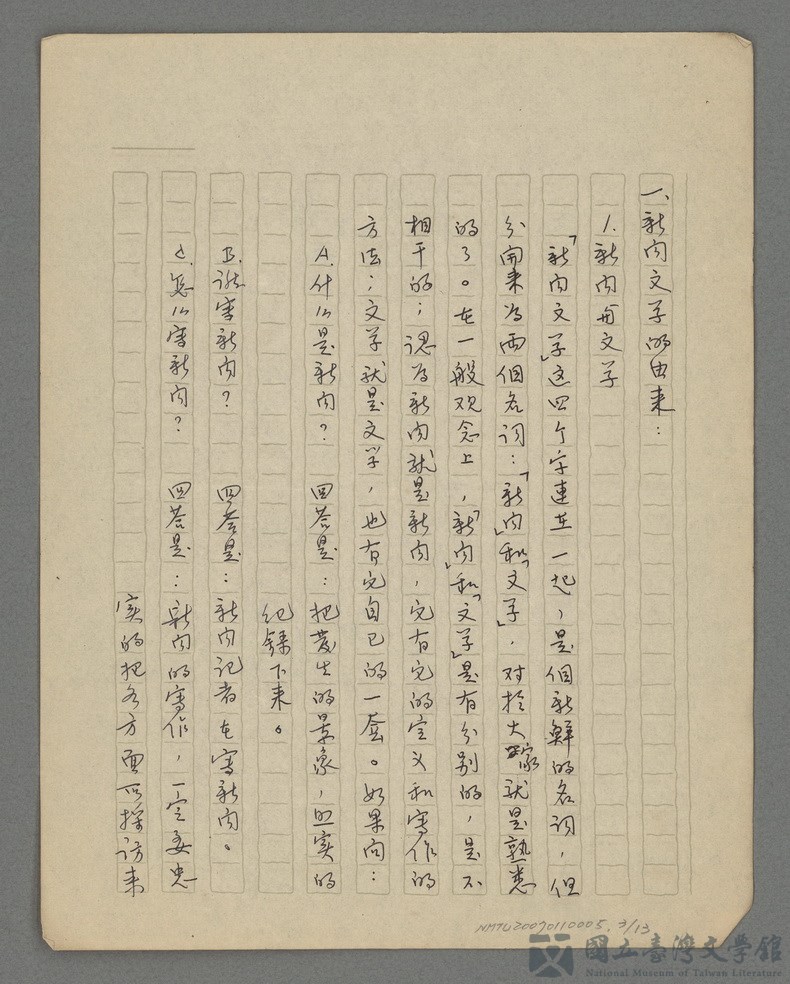 一、新闻文学的由来：
1.新闻与文学
「新闻文学」这四个字连在一起，是個新鮮的名词，但
分開来为两個名词：「新闻」和「文学」，对於大家就是熟悉
的了。在一般观念上，「新闻」和「文学」是有分别的，是不
相干的；認为新闻就是新闻，它有它的定义和寫作的
方法；文学就是文学，也有它自己的一套。如果问：
A.什么是新闻？　回答是：把發生的景象，照实的
纪録下来。
B.谁寫新闻？　回答是：新闻记者在寫新闻。
C.怎么寫新闻？　回答是：新闻的寫作，一定要忠
实的把各方面所採访来
NMTL20070110005. 3/13
國立臺灣文學館
National Museum of Taiwan Literature